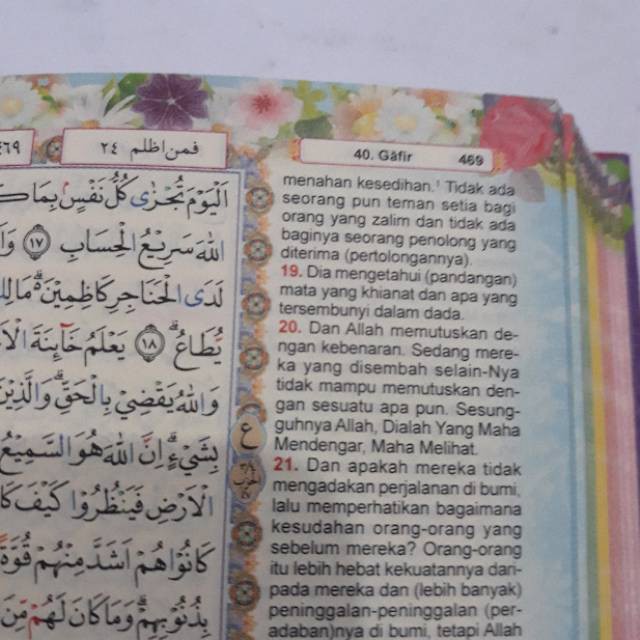 ٤٦٩
فمن اظلم ٢٤
40. Gāfir 469
اَلْيَوْمَ تُجْزٰى كُلُّ نَفْسٍۢ بِمَا
اللّٰهَ سَرِيْعُ الْحِسَابِ ١٧
لَدَى الْحَنَاجِرِ كَاظِمِيْنَ ەۗ
يُّطَاعُۗ ١٨ يَعْلَمُ خَاۤىِٕنَةَ
وَاللّٰهُ يَقْضِيْ بِالْحَقِّۗ وَالَّذِيْنَ
بِشَيْءٍۗ اِنَّ اللّٰهَ هُوَ السَّمِيْعُ
الْاَرْضِ فَيَنْظُرُوْا كَيْفَ
كَانُوْا هُمْ اَشَدَّ مِنْهُمْ قُوَّةً
بِذُنُوْبِهِمْۗ وَمَا كَانَ لَهُمْ مِّنَ
ع
menahan kesedihan.¹ Tidak ada
seorang pun teman setia bagi
orang yang zalim dan tidak ada
baginya seorang penolong yang
diterima (pertolongannya).
19. Dia mengetahui (pandangan)
mata yang khianat dan apa yang
tersembunyi dalam dada.
20. Dan Allah memutuskan de-
ngan kebenaran. Sedang mere-
ka yang disembah selain-Nya
tidak mampu memutuskan den-
gan sesuatu apa pun. Sesung-
guhnya Allah, Dialah Yang Maha
Mendengar, Maha Melihat.
21. Dan apakah mereka tidak
mengadakan perjalanan di bumi,
lalu memperhatikan bagaimana
kesudahan orang-orang yang
sebelum mereka? Orang-orang
itu lebih hebat kekuatannya dari-
pada mereka dan (lebih banyak)
peninggalan-peninggalan (per-
adaban)nya di bumi, tetapi Allah